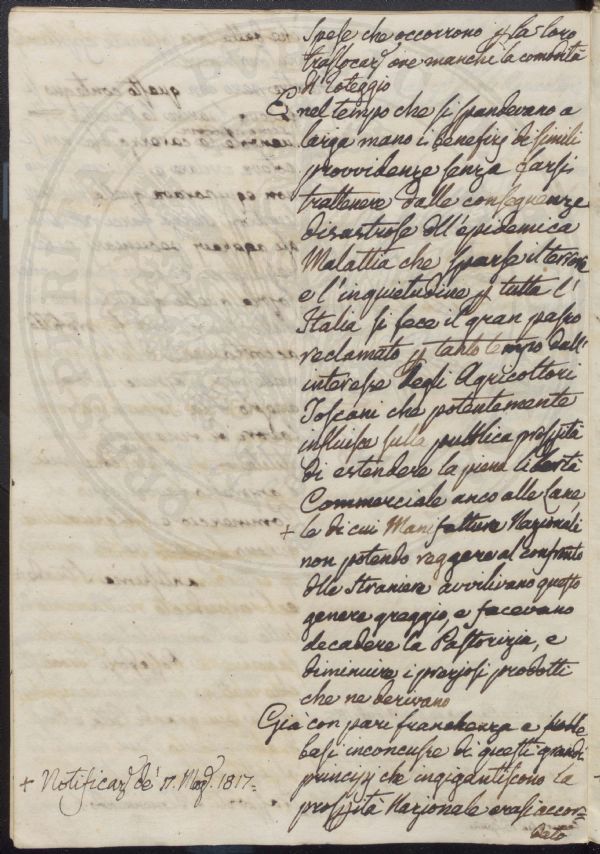 spese che occorrono p la loro
traslocaz.e ove manchi la comodità
d'Ioteggio
E nel tempo che si spandevano a
larga mano i benefizj di simili
provvidenze senza farsi
trattenere dalle conseguenze
disastrose dll'epidemica
Malattia che sparse il terrore
e l'inquietudine p tutta l'
Italia si fece il gran passo
reclamato p tanto tempo dall'
interesse degli Agricoltori
Toscani che potentemente
influisce sulla pubblica prosptà
di estendere la piena libertà
Commerciale anco alle Lane,
+ le di cui Manifatture Nazionali
non potendo reggere al confronto
dlle Straniere avvilivano questo
genere greggio, e facevano
decadere la Pastorizia, e
diminuire i preziosi prodotti
che ne derivano
Già con pari franchezza e
basi inconcusse di questi grandi
principj che ingigantiscono la
prosptà Nazionale erasi accor=
dato
+ Notificaz.e de' 17. Mag.o 1817=